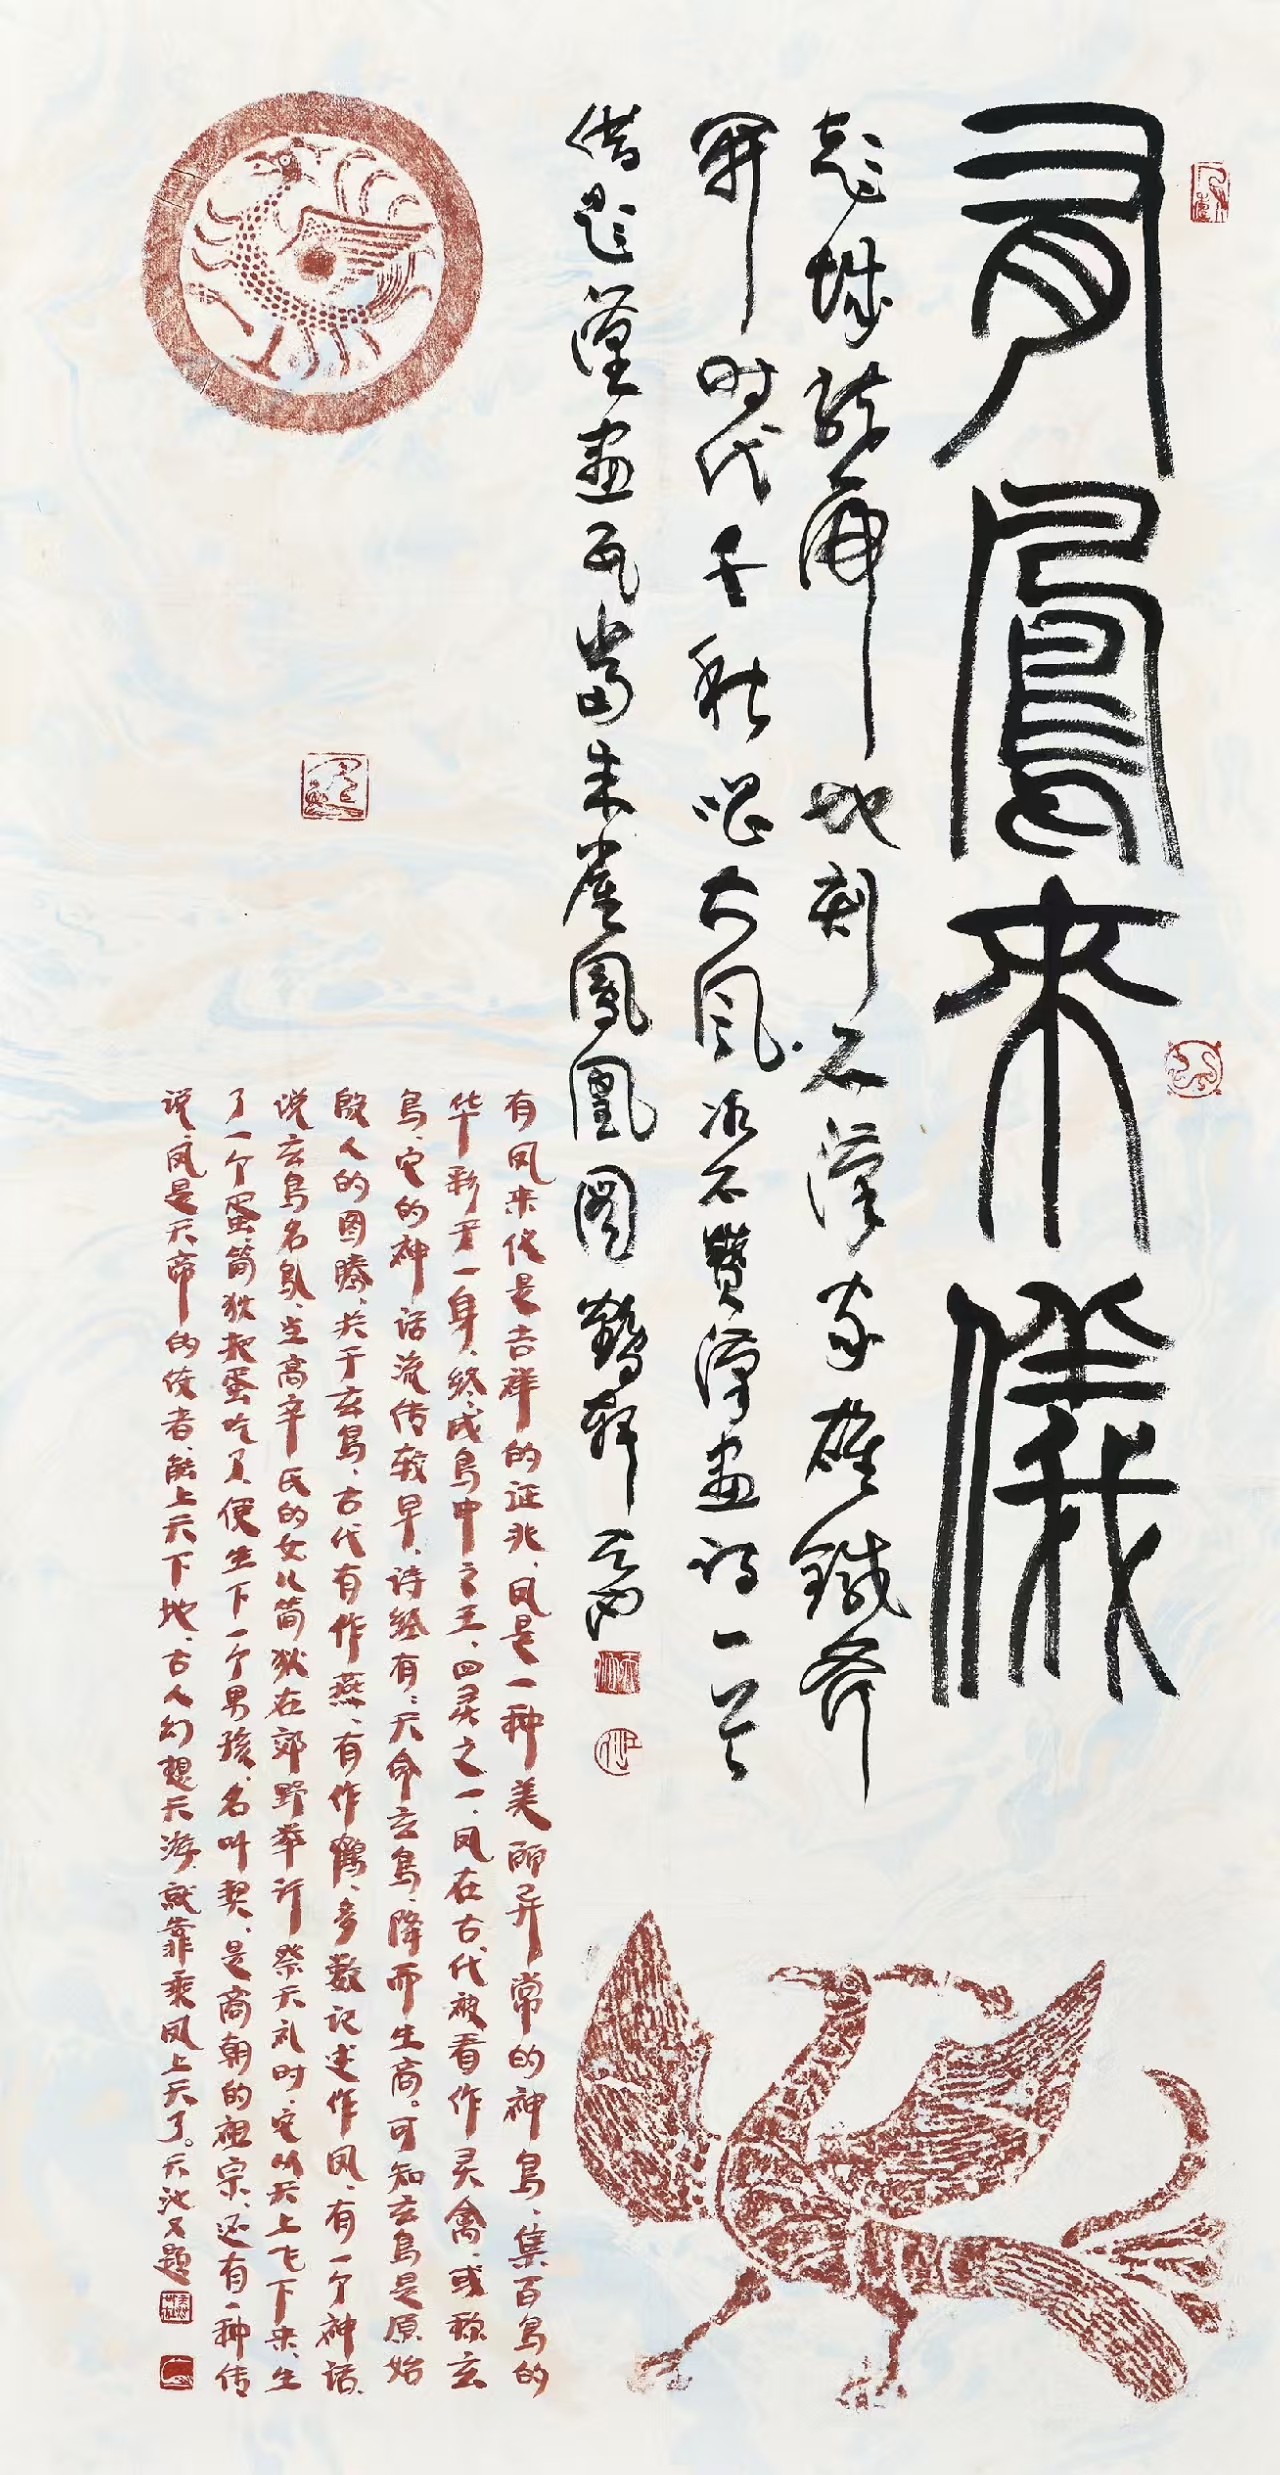 有鳳來儀
彭城旋舞地刻石漢家雄鐵斧
開时代千秋唱大风 次石贊漢画诗一首
借题漢畫瓦當朱雀鳳凰圖
有凤来仪是吉祥的证兆、凤是一种美丽异常的神鸟、集百鸟的
华彩于一身、终成鸟中之王、四灵之一、凤在古代被看作灵禽、或称玄
鸟、它的神话流传较早、诗经有、天命玄鸟、降而生商。可知玄鸟是原始
殷人的图腾、关于玄鸟、古代有作燕、有作鹤、多数记述作凤、有一个神话、
说玄鸟名鳦、生高辛氏的女儿简狄在郊野举行祭天礼时、它从天上飞下来、生
了一个蛋、简狄把蛋吃了、便生下一个男孩、名叫契、是商朝的祖宗、还有一种传
说、凤是天帝的使者、能上天下地、古人幻想天游、就靠乘凤上天了。天池又题